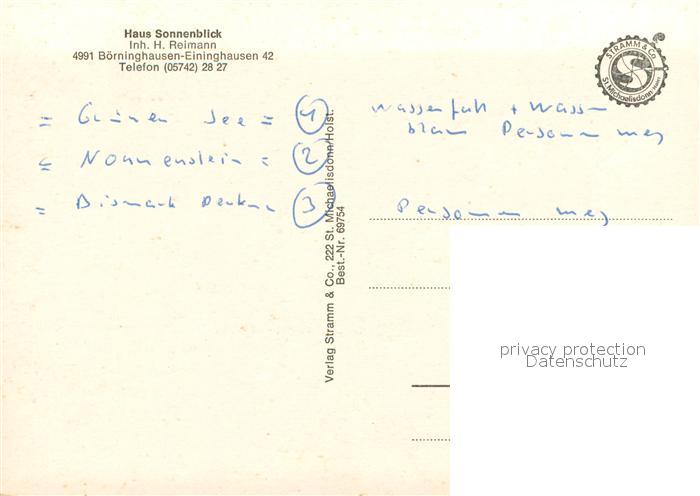 Haus Sonnenblick
Inh. H. Reimann
4991 Börninghausen-Eininghausen 42
Telefon (05742) 28 27
STRAMM & Co.
St. Michaelisdonn
= Grüner See = 1
= Nonnenstein = 2
= Bismark Denkm 3
Wasserfall + Wasser
blau Personen weg
Personen weg
Verlag Stramm & Co., 222 St. Michaelisdonn/Holst.
Best.-Nr. 69754
privacy protection
Datenschutz